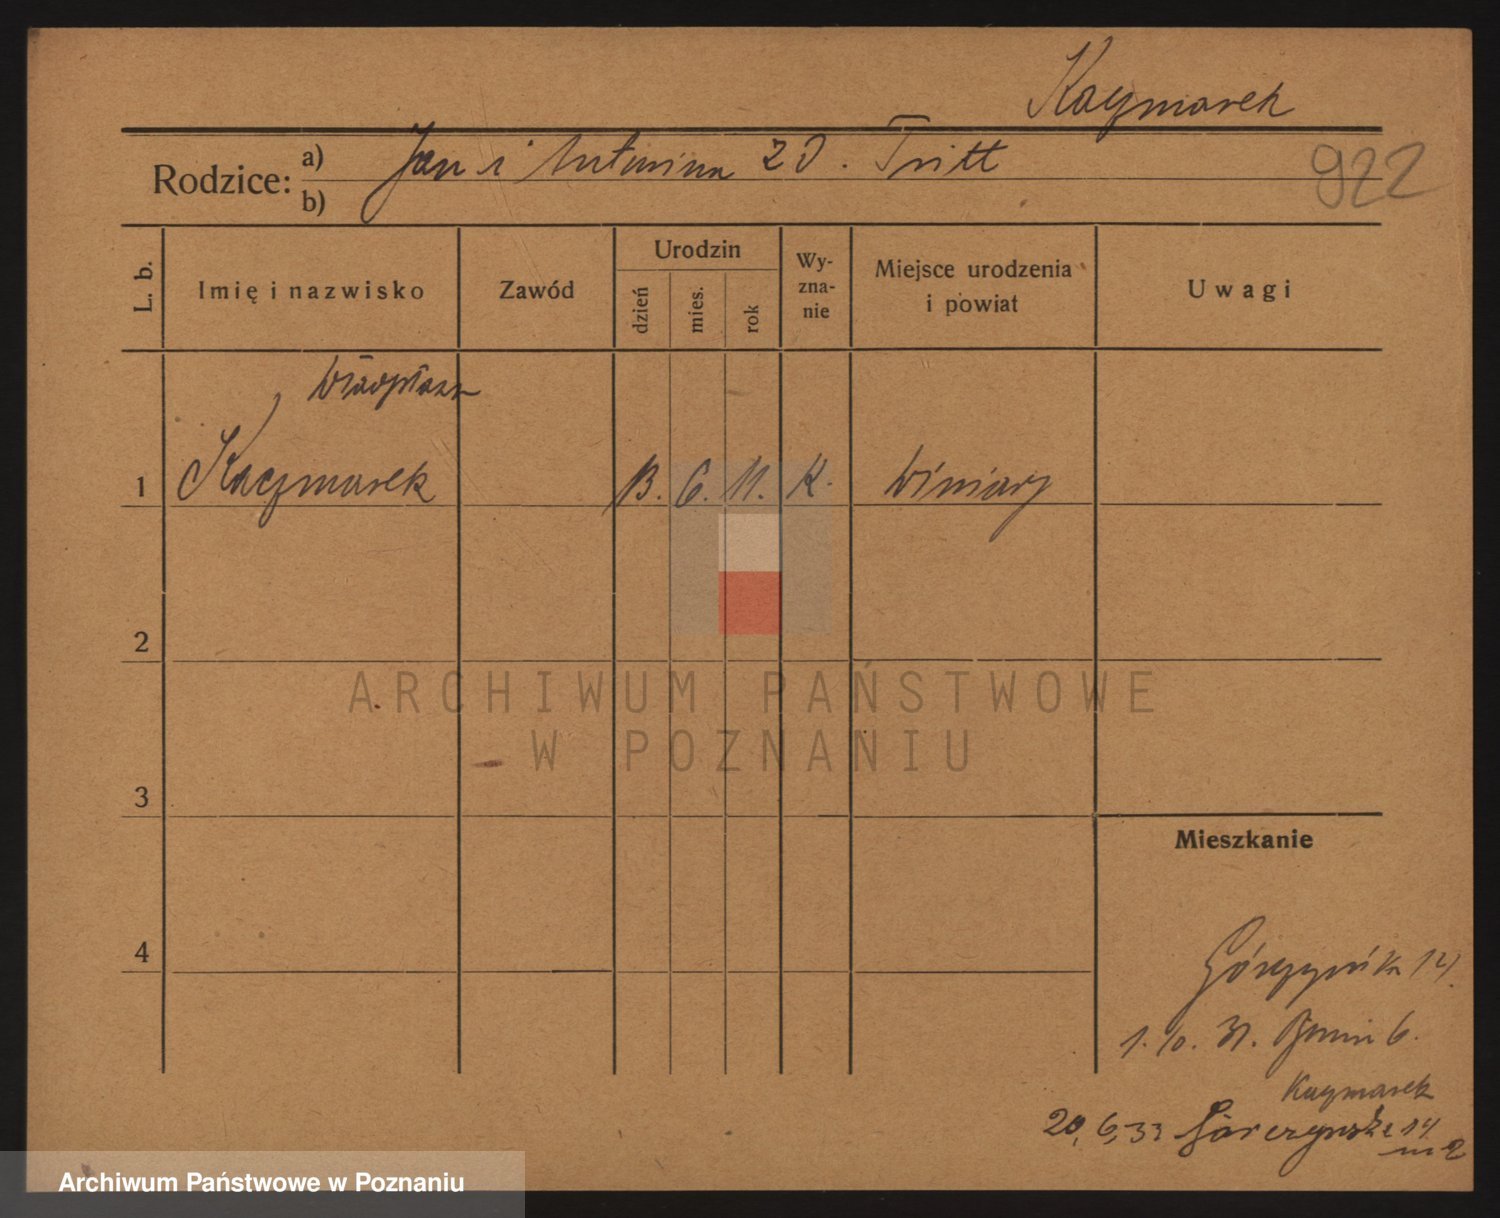 Kaczmarek
Rodzice: a) Jan i Antonina z d. Tritt
b)
922
L. b.
Imię i nazwisko
Zawód
Urodzin
dzień
mies.
rok
Wy-
zna-
nie
Miejsce urodzenia
i powiat
Uwagi
Władysław
1 Kaczmarek 13. 6. 11. K. Winiary
2
3
4
ARCHIWUM PAŃSTWOWE
W POZNANIU
Mieszkanie
Górczyńska 14.
1. 10. 31. 6.
Kaczmarek
20, 6, 33 Górczyńska 14
m 2
Archiwum Państwowe w Poznaniu